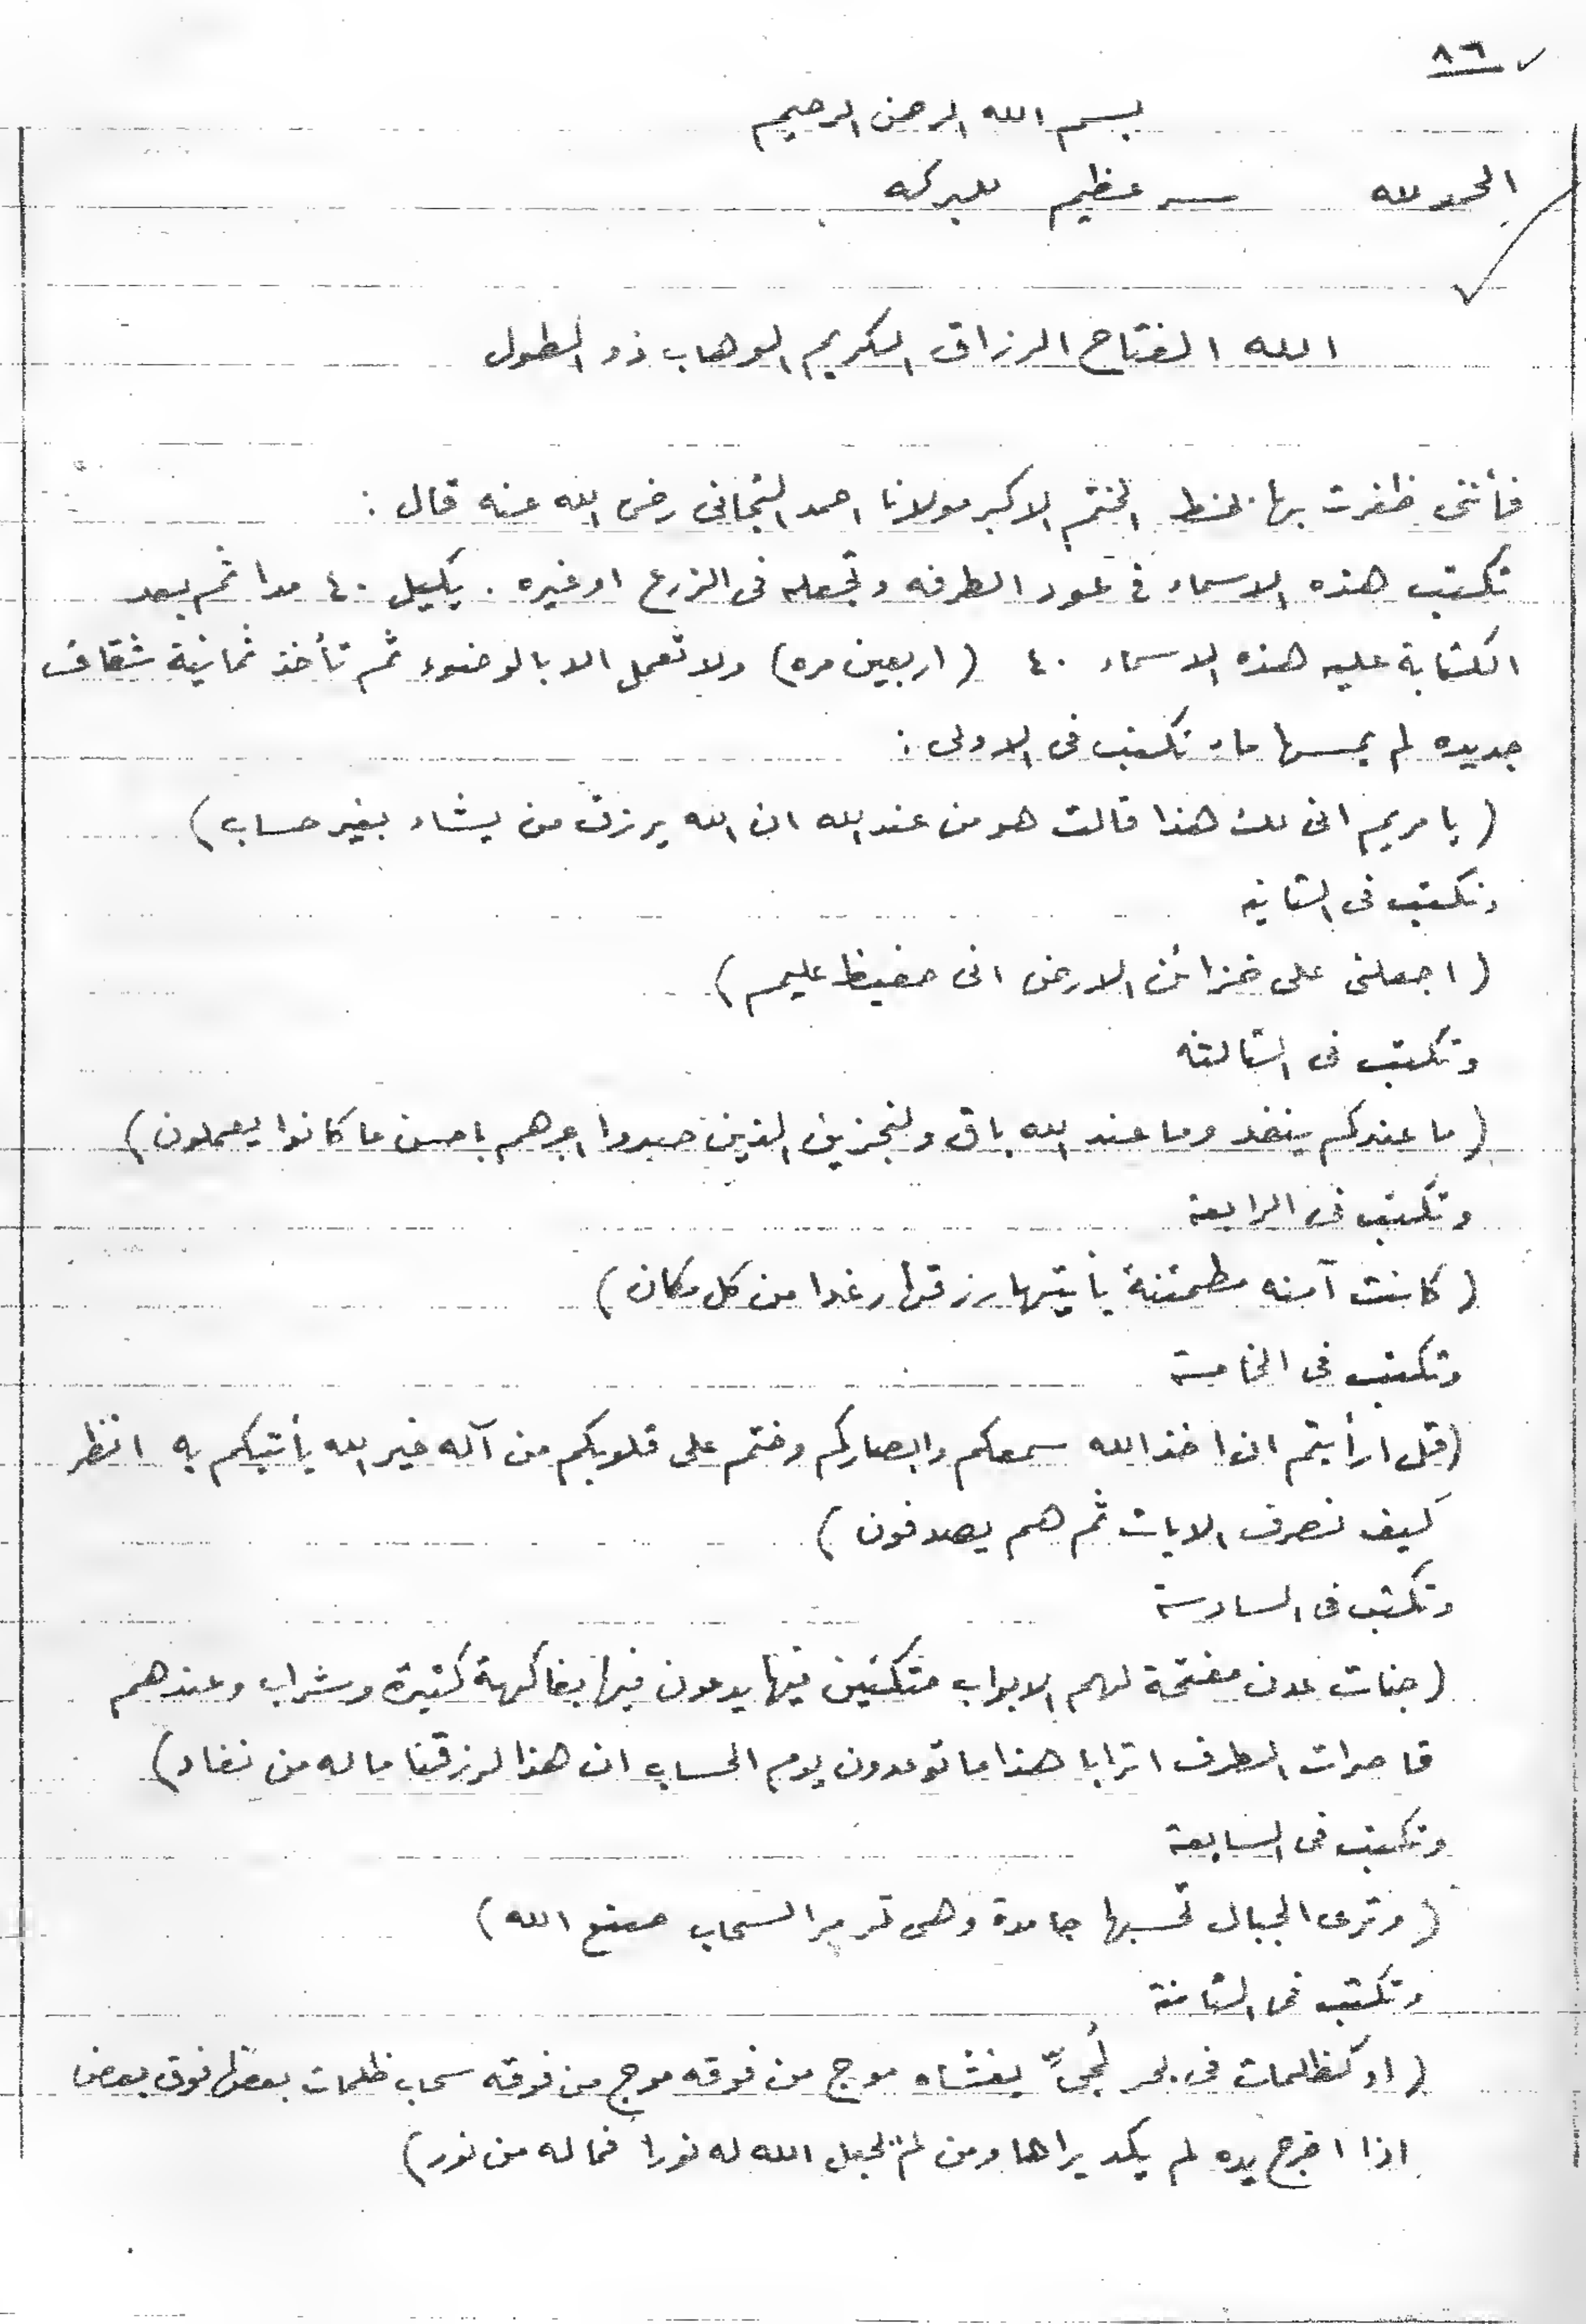 ٨٦
بسم الله الرحمن الرحيم
الحمد لله سر عظيم للبركه
الله الفتاح الرزاق الكريم الوهاب ذو الطول
فأننى ظفرت بها بخط الختم الاكبر مولانا احمد التجانى رضى الله عنه قال :
تكتب هذه الاسماء فى عود الطرفه وتجعله فى الزرع او غيره . يكيل ٤٠ مدا ثم بعد
الكتابة عليه هذه الاسماء ٤٠ (اربعين مره) ولا تعمل الا بالوضوء ثم تأخذ ثمانية شقاف
جديده لم يمسها ماء تكتب فى الاولى :
(يا مريم انى لك هذا قالت هو من عند الله ان الله يرزق من يشاء بغير حساب)
وتكتب فى الثانيه
(اجعلنى على خزائن الارض انى حفيظ عليم)
وتكتب فى الثالثه
(ما عندكم ينفد وما عند الله باق ولنجزين الذين صبروا اجرهم باحسن ما كانوا يعملون)
وتكتب فى الرابعة
(كانت آمنه مطمئنة يأتيها رزقها رغدا من كل مكان)
وتكتب فى الخامسة
(قل ارأيتم ان اخذ الله سمعكم وابصاركم وختم على قلوبكم من آله غير الله يأتيكم به انظر
كيف نصرف الايات ثم هم يصدفون)
وتكتب فى السادسة
(جنات عدن مفتحة لهم الابواب متكئين فيها يدعون فيها بفاكهة كثيرة وشراب وعندهم
قاصرات الطرف اترابا هذا ما توعدون ليوم الحساب ان هذا لرزقنا ماله من نفاد)
وتكتب فى السابعة
(وترى الجبال تحسبها جامدة وهى تمر مر السحاب صنع الله)
وتكتب فى الثامنة
(او كظلمات فى بحر لُجىٍّ يغشاه موج من فوقه موج من فوقه سحاب ظلمات بعضها فوق بعض
اذا اخرج يده لم يكد يراها ومن لم يجعل الله له نورا فما له من نور)